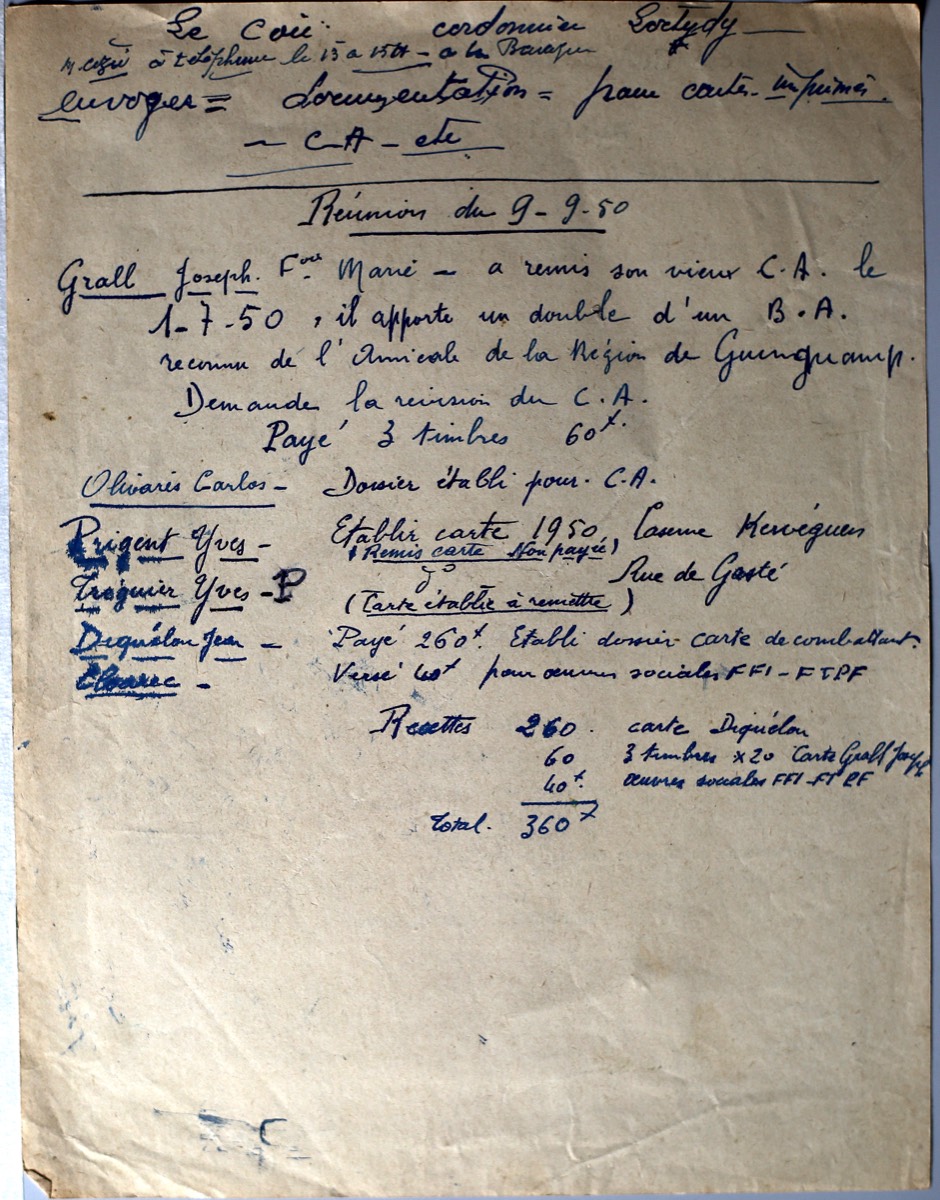 Le Coü cordonnier Loctudy
à téléphoné le 13 a 15H - a la
envoyer = documentation = pour cartes - imprimés.
- C-A - etc
Réunion du 9-9-50
Grall Joseph. Fois Marie - a remis son vieux C.A. le
1-7-50, il apporte un double d'un B.A.
reconnu de l'Amicale de la Région de Guingamp.
Demande la revision du C.A.
Payé 3 timbres 60f.
Olivarès Carlos - Dossier établi pour C.A.
Prigent Yves - Etablir carte 1950, Caserne Kervéguen
(Remis carte Non payée)
Rue de Gasté
Troguier Yves - P
(Carte établie à remettre)
Diquélou Jean - Payé 260f. Etabli dossier carte de combattant.
Verse 40f pour œuvres sociales FFI-FTPF
Recettes 260. carte Diquélou
60 3 timbres x20 Carte Grall Joseph
40f. œuvres sociales FFI-FTPF
Total. 360f